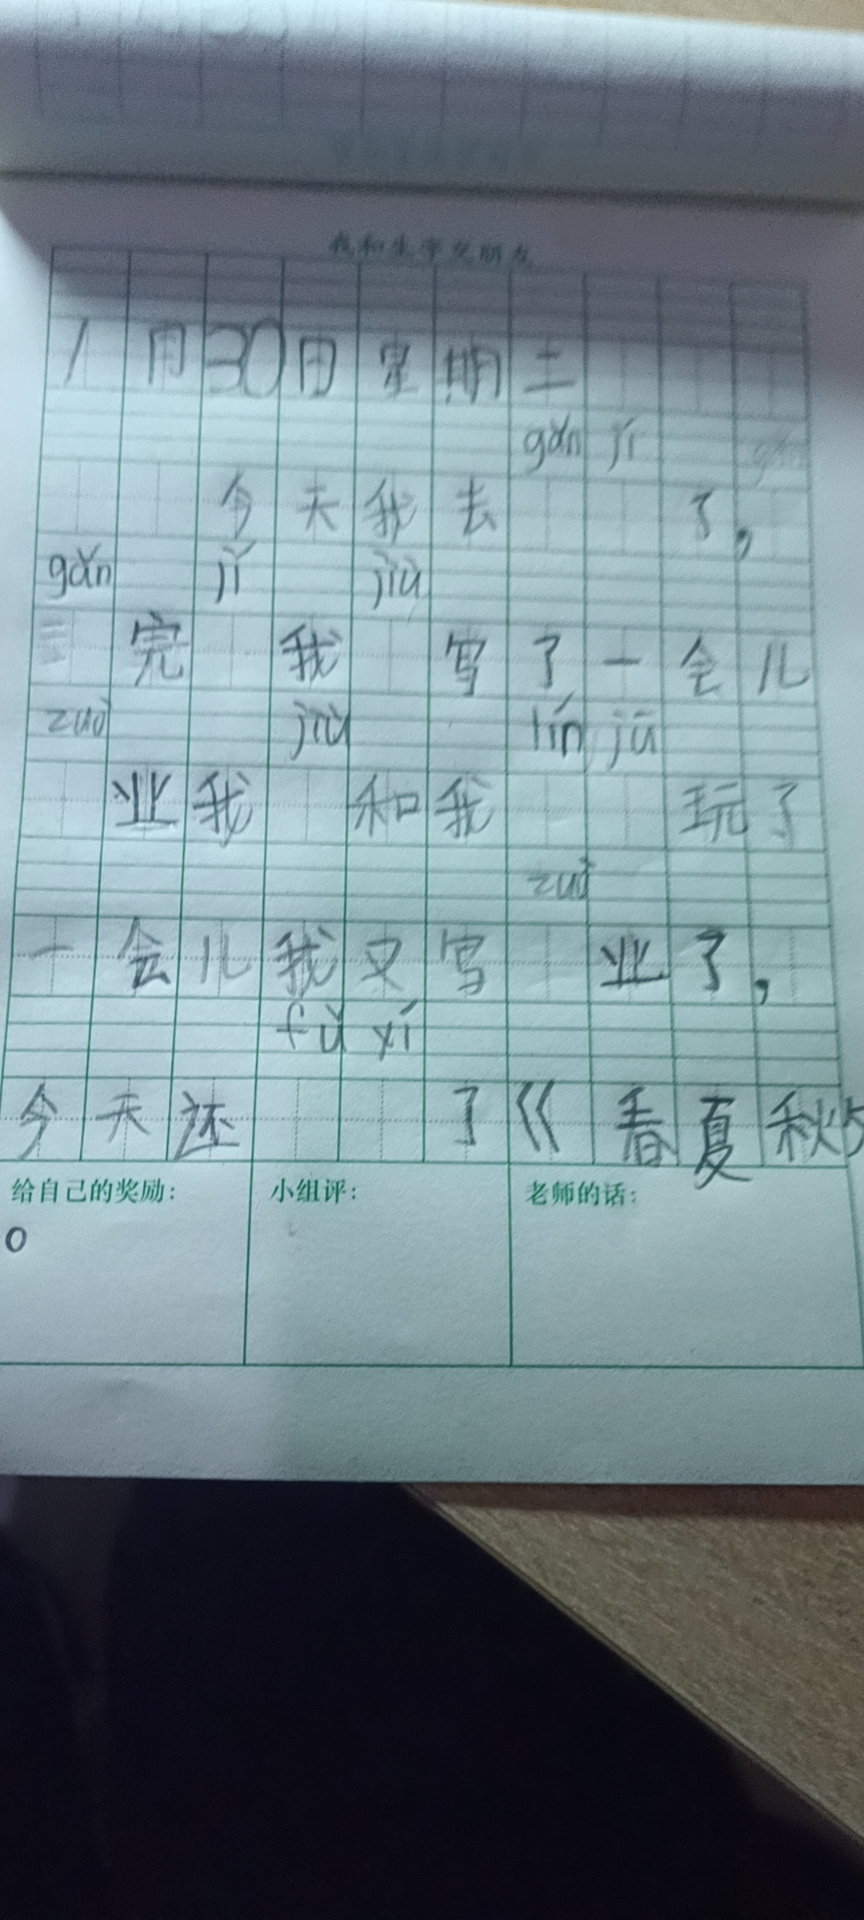 我和生字交朋友
1月30日星期六
gǎn jí
今天我去了,
gǎn jí jiù
完我写了一会儿
zuò jiù lín jū
业我和我玩了
zuò
一会儿我又写业了,
fù xí
今天还了《春夏秋冬
给自己的奖励: 小组评: 老师的话: